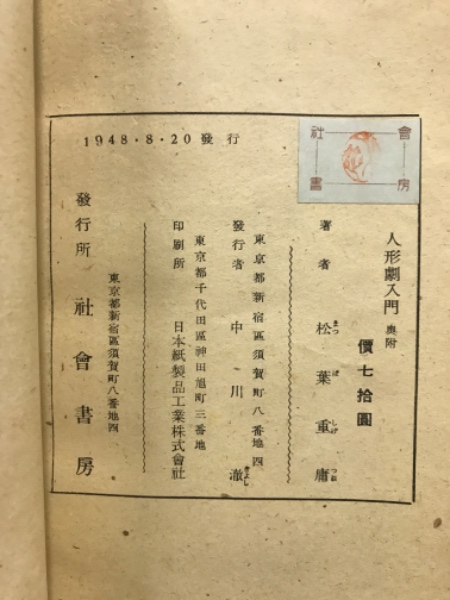 1948・8・20 發行
社會書房
人形劇入門 奧附
價七拾圓
著者 松葉重庸
まつ ば しげ つね
東京都新宿區須賀町八番地四
發行者 中川澈
きよし
東京都千代田區神田旭町三番地
印刷所 日本紙製品工業株式會社
東京都新宿區須賀町八番地四
發行所 社會書房